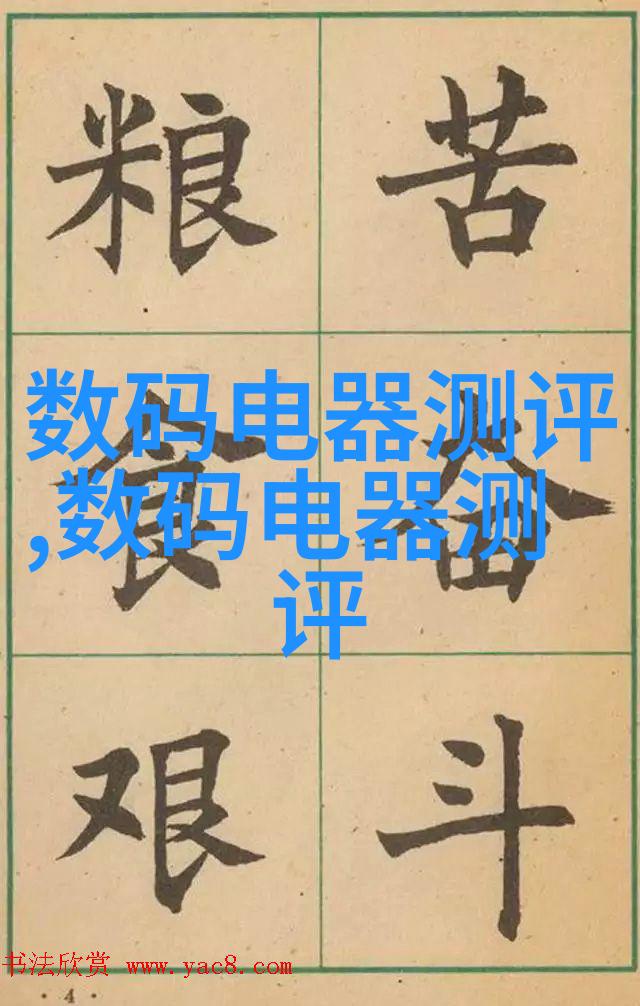 粮 苦
食 奋
艰 斗
数码电器测评
,数码电器测
评
书法欣赏 www.yac8.com
· 4 ·